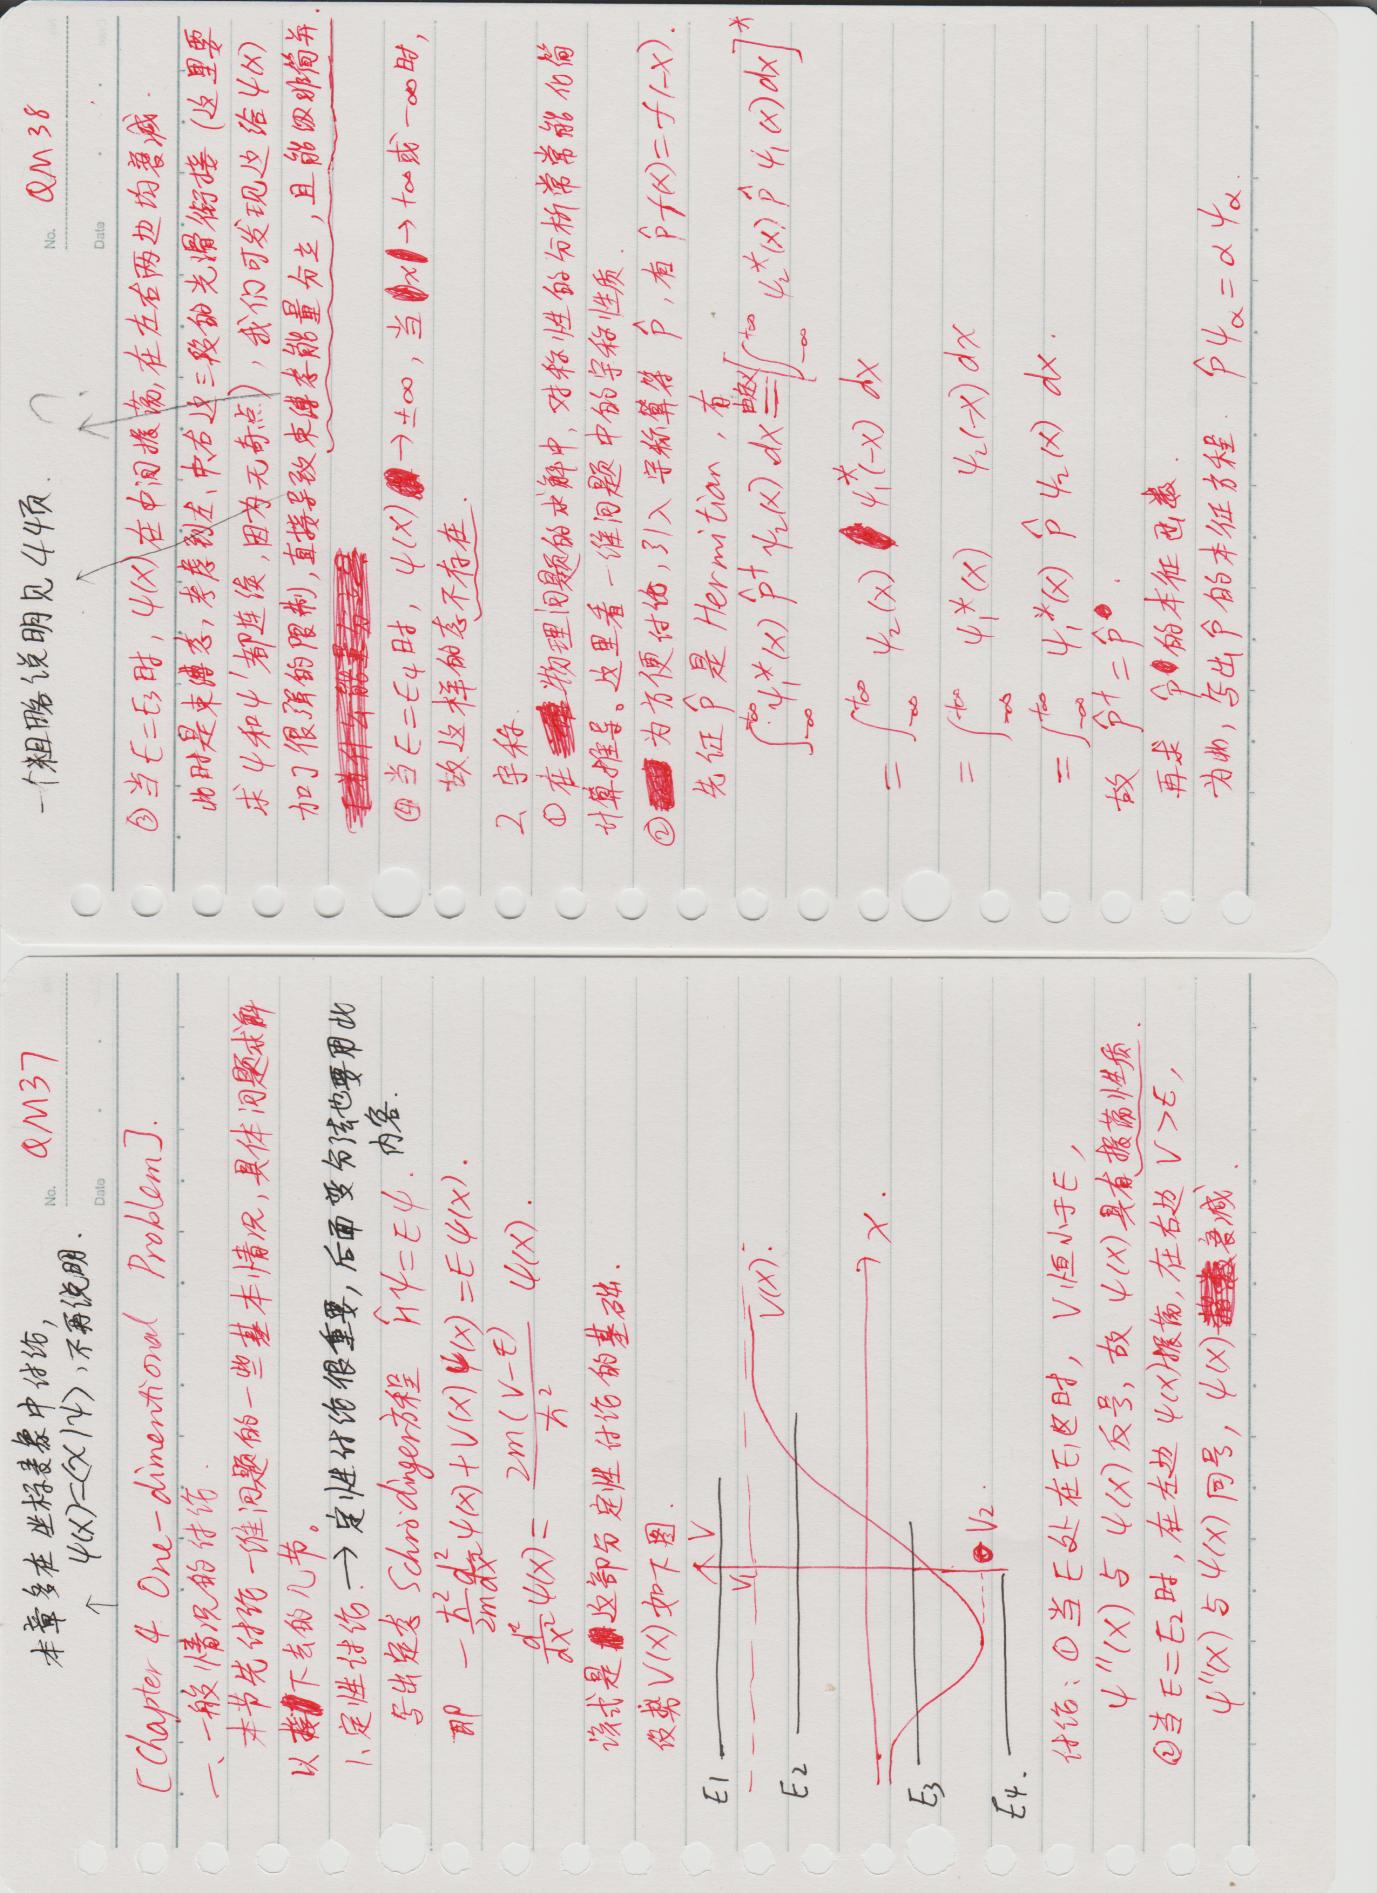 本章多在坐标表象中讨论,
ψ(x)=⟨x|ψ⟩,不再说明.
No. QM37
Date
↑
[Chapter 4 One-dimentional Problem].
一、一般情况的讨论.
本节先讨论一维问题的一些基本情况,具体问题求解
以接下去的几节。
1、定性讨论. → 定性讨论很重要,后面变分法也要用此
内容.
写出定态Schrödinger方程 Ĥψ=Eψ.
即 -ℏ²/2m d²/dx² ψ(x)+V(x)ψ(x)=Eψ(x).
d²/dx² ψ(x)= 2m(V-E)/ℏ² ψ(x).
该式是这部分定性讨论的基础.
设势V(x)如下图.
E1
V
V1
V(x).
E2
x.
E3
V2.
E4.
讨论: ①当E处在E1区时, V恒小于E,
ψ''(x)与ψ(x)反号,故ψ(x)具有振荡性质.
②当E=E2时,在左边ψ(x)振荡,在右边V>E,
ψ''(x)与ψ(x)同号,ψ(x)衰减.
一个粗略说明见44页.
?
No. QM38
Date
③当E=E3时,ψ(x)在中间振荡,在左右两边均衰减.
此时是束缚态,考虑到左、中右这三段的光滑衔接(这里要
求ψ和ψ'都连续,因为无奇点),我们可发现边给ψ(x)
加了很强的限制,直接导致束缚态能量分立,且能级非简并.
④当E=E4时,ψ(x)→±∞,当x→+∞或-∞时,
故这样的态不存在.
2、宇称.
①在物理问题的求解中,对称性的分析常常能化简
计算推导。这里看一维问题中的宇称性质.
②为方便讨论,引入宇称算符 P̂,有P̂f(x)=f(-x).
先证P̂是Hermitian,有
∫_{-∞}^{+∞} ψ₁*(x) P̂† ψ₂(x) dx 由定义= [∫_{-∞}^{+∞} ψ₂*(x) P̂ ψ₁(x) dx]*
= ∫_{-∞}^{+∞} ψ₂(x) ψ₁*(-x) dx
= ∫_{-∞}^{+∞} ψ₁*(x) ψ₂(-x) dx
= ∫_{-∞}^{+∞} ψ₁*(x) P̂ ψ₂(x) dx.
故 P̂†=P̂.
再求 P̂的本征函数.
为此,写出P̂的本征方程. P̂ψ_α=αψ_α.